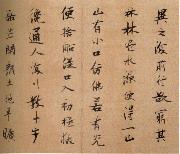 異之復前行欲窮其
林林盡水源便得一山
山有小口仿佛若有光
便捨船從口入初極狹
纔通人復行數十步
豁然開朗土地平曠